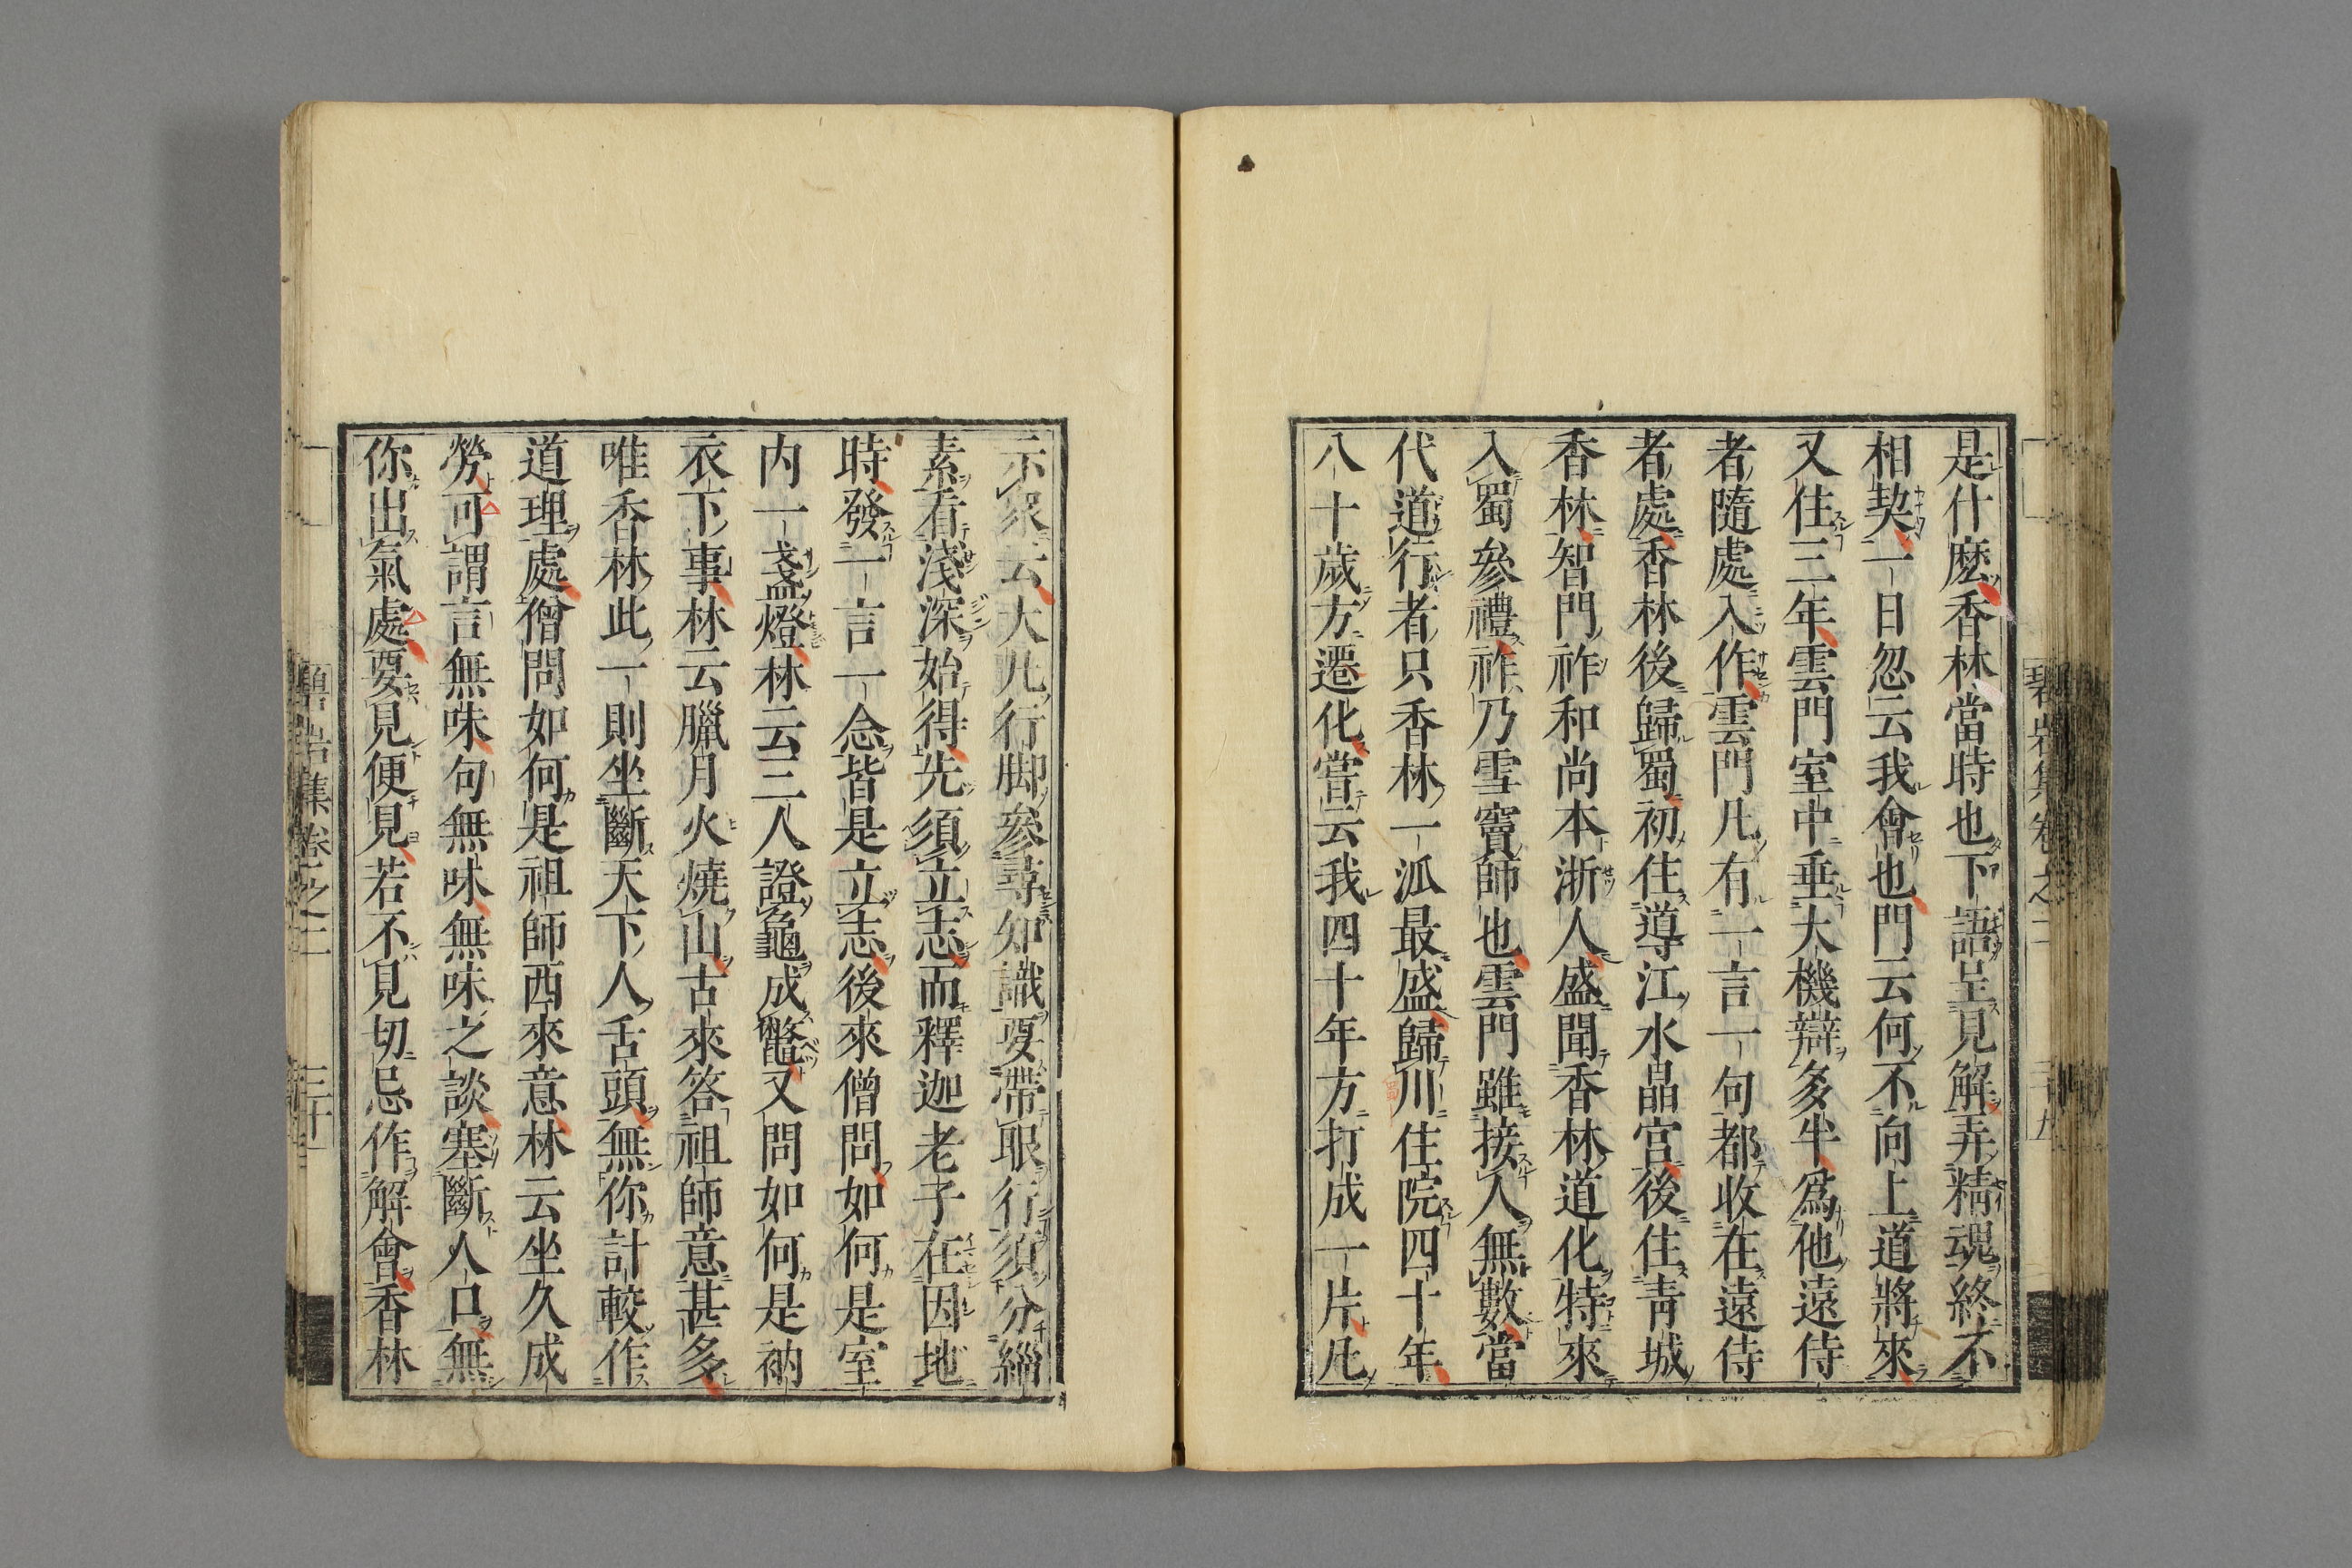 是什麽香林當時也下語呈見解弄精魂終不
相契一日忽云我會也門云何不向上道將來
又住三年雲門室中垂大機辯多半爲他遠侍
者隨處入作雲門凡有一言一句都收在遠侍
者處香林後歸蜀初住導江水晶宮後住靑城
香林智門祚和尚本浙人盛聞香林道化特來
入蜀參禮祚乃雪竇師也雲門雖接人無數當
代道行者只香林一泒最盛歸川住院四十年
八十歲方遷化嘗云我四十年方打成一片凡
示衆云大凡行脚參尋知識要帶眼行須分緇
素看淺深始得先須立志而釋迦老子在因地
時發一言一念皆是立志後來僧問如何是室
内一盞燈林云三人證龜成鼈又問如何是衲
衣下事林云臘月火燒山古來答祖師意甚多
唯香林此一則坐斷天下人舌頭無你計較作
道理處僧問如何是祖師西來意林云坐久成
勞可謂言無味句無味無味之談塞斷人口無
你出氣處要見便見若不見切忌作解會香林
碧岩集卷之二